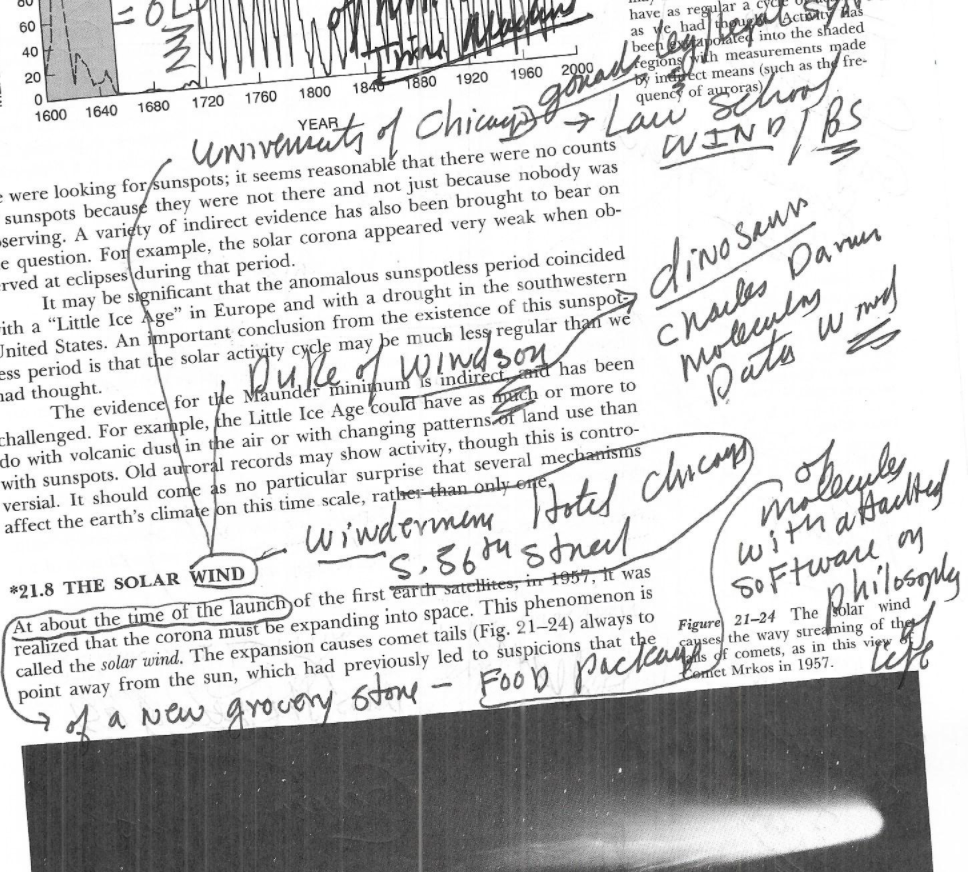 80
60
40
20
0
1600 1640 1680 1720 1760 1800 1840 1880 1920 1960 2000
YEAR
have as regular a cycle
as we had thought. Activity has
been extrapolated into the shaded
regions with measurements made
by indirect means (such as the fre-
quency of auroras)
of Chicago → Law School
WIND / BS
were looking for sunspots; it seems reasonable that there were no counts
sunspots because they were not there and not just because nobody was
serving. A variety of indirect evidence has also been brought to bear on
e question. For example, the solar corona appeared very weak when ob-
rved at eclipses during that period.
It may be significant that the anomalous sunspotless period coincided
ith a “Little Ice Age” in Europe and with a drought in the southwestern
United States. An important conclusion from the existence of this sunspot-
ess period is that the solar activity cycle may be much less regular than we
had thought.
dinosaurs
Charles Darwin
molecules
Data Wind
Duke of Windsor
The evidence for the Maunder minimum is indirect, and has been
challenged. For example, the Little Ice Age could have as much or more to
do with volcanic dust in the air or with changing patterns of land use than
with sunspots. Old auroral records may show activity, though this is contro-
versial. It should come as no particular surprise that several mechanisms
affect the earth’s climate on this time scale, rather than only one.
Windermere Hotel Chicago
S. 56th Street
of
molecules
with attached
software on
philosophy
of
life
*21.8 THE SOLAR WIND
At about the time of the launch of the first earth satellites, in 1957, it was
realized that the corona must be expanding into space. This phenomenon is
called the solar wind. The expansion causes comet tails (Fig. 21–24) always to
point away from the sun, which had previously led to suspicions that the
of a new grocery store – Food package
Figure 21–24 The solar wind
causes the wavy streaming of the
tails of comets, as in this view of
Comet Mrkos in 1957.